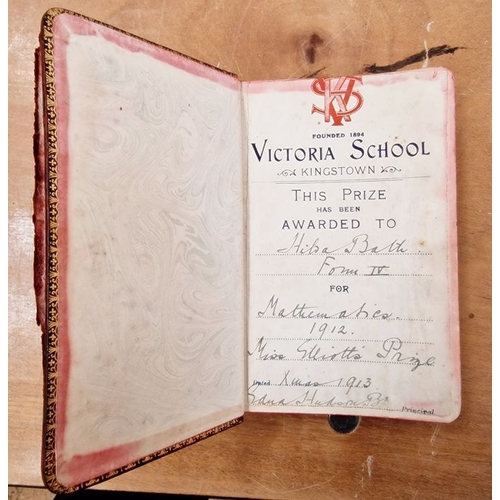 FOUNDED 1894
VICTORIA SCHOOL
KINGSTOWN
THIS PRIZE
HAS BEEN
AWARDED TO
Form IV
FOR
Mathematics.
1912.
Miss Elliott's Prize
Xmas 1913
Edna Hudson
Principal